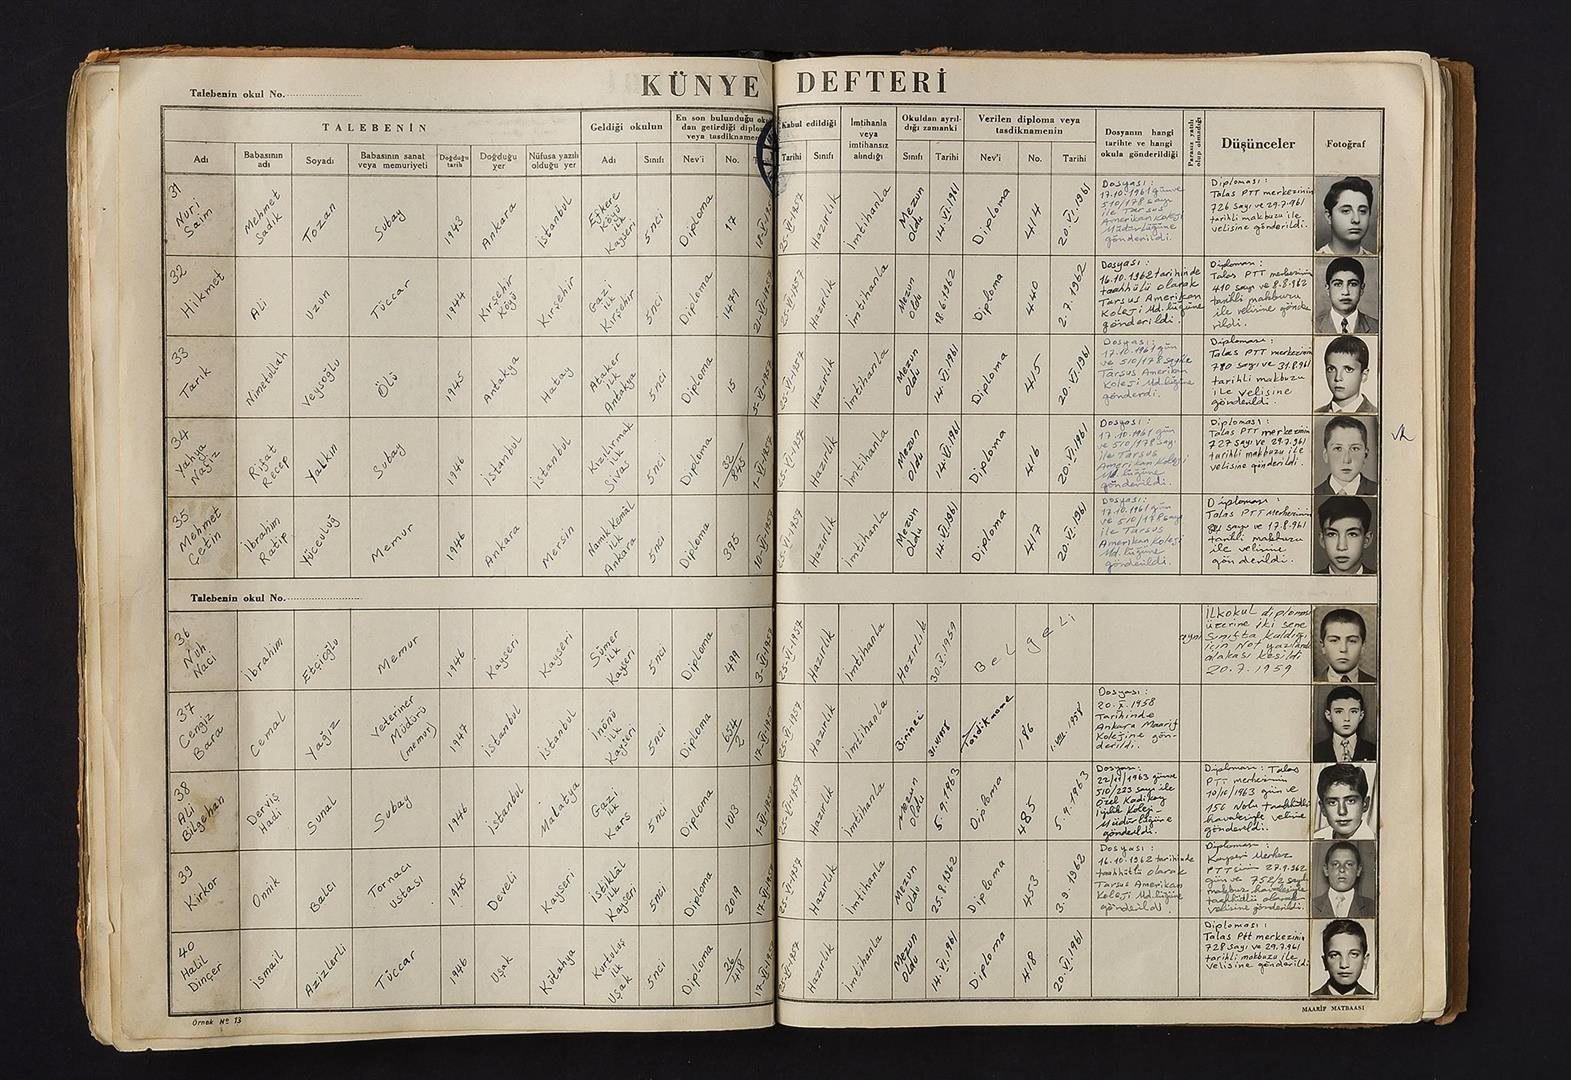 KÜNYE DEFTERİ
Talebenin okul No.
TALEBENİN
Geldiği okulun
En son bulunduğu oku
dan getirdiği diplo
veya tasdikname
Kabul edildiği
İmtihanla
veya
imtihansız
alındığı
Okuldan ayrıl-
dığı zamanki
Verilen diploma veya
tasdiknamenin
Dosyanın hangi
tarihte ve hangi
okula gönderildiği
Parasız yatılı
olup olmadığı
Düşünceler
Fotoğraf
Adı
Babasının
adı
Soyadı
Babasının sanat
veya memuriyeti
Doğduğu
tarih
Doğduğu
yer
Nüfusa yazılı
olduğu yer
Adı
Sınıfı
Nev'i
No.
Tarihi
Sınıfı
Sınıfı
Tarihi
Nev'i
No.
Tarihi
31
Nuri
Saim
Mehmet
Sadık
Tozan
Subay
1943
Ankara
İstanbul
Efkere
Köyü
ilk
Kayseri
5nci
Diploma
17
25-VI-1957
Hazırlık
İmtihanla
Mezun
Oldu
14.VI.1961
Diploma
414
20.VI.1961
Dosyası:
17.10.1961 gün ve
510/178 sayı
ile Tarsus
Amerikan Koleji
Müdürlüğüne
gönderildi.
Diploması:
Talas PTT merkezinin
726 sayı ve 29.7.961
tarihli makbuzu ile
velisine gönderildi.
32
Hikmet
Ali
Uzun
Tüccar
1944
Kırşehir
Köyü
Kırşehir
Gazi
ilk
Kırşehir
5nci
Diploma
1471
25-VI-1957
Hazırlık
İmtihanla
Mezun
oldu
18.6.1962
Diploma
440
2.7.1962
Dosyası:
16.10.1962 tarihinde
taahhütlü olarak
Tarsus Amerikan
Koleji Md.lüğüne
gönderildi.
Diploması:
Talas PTT merkezinin
410 sayı ve 8.8.962
tarihli makbuzu
ile velisine gönde
rildi.
33
Tarık
Nimetullah
Veysoğlu
Ölü
1945
Antakya
Hatay
Ataker
ilk
Antakya
5nci
Diploma
15
5-VI-1957
25-VI-1957
Hazırlık
İmtihanla
Mezun
Oldu
14.VI.1961
Diploma
415
20.VI.1961
Dosyası:
17.10.1961 gün
ve 510/178 sayı ile
Tarsus Amerikan
Koleji Md.lüğüne
gönderdi.
Diploması:
Talas PTT merkezinin
780 sayı ve 31.8.961
tarihli makbuzu
ile velisine
gönderildi.
34
Yahya
Yağız
Rıfat
Recep
Yalkın
Subay
1946
İstanbul
İstanbul
Kızılırmak
ilk
Sivas
5nci
Diploma
32
845
1-VI-1957
25-VI-1957
Hazırlık
İmtihanla
Mezun
Oldu
14.VI.1961
Diploma
416
20.VI.1961
Dosyası:
17.10.1961 gün
ve 510/178 sayı
ile Tarsus
Amerikan Koleji
Md.lüğüne
gönderildi.
Diploması:
Talas PTT merkezinin
727 sayı ve 29.7.961
tarihli makbuzu ile
velisine gönderildi.
35
Mehmet
Çetin
İbrahim
Ratip
Yüceuluğ
Memur
1946
Ankara
Mersin
Namık Kemal
ilk
Ankara
5nci
Diploma
395
10-VI-1957
25-VI-1957
Hazırlık
İmtihanla
Mezun
Oldu
14.VI.1961
Diploma
417
20.VI.1961
Dosyası:
17.10.1961 gün
ve 510/178 sayı
ile Tarsus
Amerikan Koleji
Md.lüğüne
gönderildi.
Diploması:
Talas PTT Merkezinin
sayı ve 17.8.961
tarihli makbuzu
ile velisine
gönderildi.
Talebenin okul No.
36
Nuh
Naci
İbrahim
Etçioğlu
Memur
1946
Kayseri
Kayseri
Sümer
ilk
Kayseri
5nci
Diploma
499
3-VI-1957
25-VI-1957
Hazırlık
İmtihanla
Hazırlık
30.VI.1959
Belgeli
ayni
İlkokul diploması
üzerine iki sene
sınıfta kaldığı
için Not yazılarak
alakası kesildi
20.7.1959
37
Cengiz
Bara
Cemal
Yağız
Veteriner
Müdürü
(memur)
1947
İstanbul
İstanbul
İnönü
ilk
Kayseri
5nci
Diploma
654
2
17-VI-1957
25-VI-1957
Hazırlık
İmtihanla
Birinci
Tasdikname
186
1.VIII.1958
Dosyası:
20.X.1958
Tarihinde
Ankara Maarif
Kolejine gön-
derildi.
38
Ali
Bilgehan
Derviş
Hadi
Sunal
Subay
1946
İstanbul
Malatya
Gazi
ilk
Kars
5nci
Diploma
1013
1-VI-1957
25-VI-1957
Hazırlık
İmtihanla
Mezun
oldu
5.9.1963
Diploma
485
5.9.1963
Dosyası:
22/11/1963 gün ve
510/223 sayı ile
Özel Kadıköy
Koleji
Müdürlüğüne
gönderildi.
Diploması: Talas
PTT merkezinin
10/10/1963 gün ve
156 Nolu taahhütlü
havalesiyle velisine
gönderildi.
39
Kirkor
Onnik
Balcı
Tornacı
ustası
1945
Develi
Kayseri
İstiklâl
ilk
Kayseri
5nci
Diploma
2019
17-VI-1957
25-VI-1957
Hazırlık
İmtihanla
Mezun
Oldu
25.8.1962
Diploma
453
3.9.1962
Dosyası:
16.10.1962 tarihinde
taahhütlü olarak
Tarsus Amerikan
Koleji Md.lüğüne
gönderildi.
Diploması:
Kayseri Merkez
PTT'sinin 27.9.962
gün ve 752/2 sayılı
makbuz havalesiyle
taahhütlü olarak
velisine gönderildi.
40
Halil
Dinçer
İsmail
Azizlerli
Tüccar
1946
Uşak
Kütahya
Kurtuluş
ilk
Uşak
5nci
Diploma
36
418
17-VI-1957
25-VI-1957
Hazırlık
İmtihanla
Mezun
Oldu
14.VI.1961
Diploma
418
20.VI.1961
Diploması:
Talas Ptt merkezinin
728 sayı ve 29.7.961
tarihli makbuzu ile
velisine gönderildi
Örnek No 13
MAARİF MATBAASI